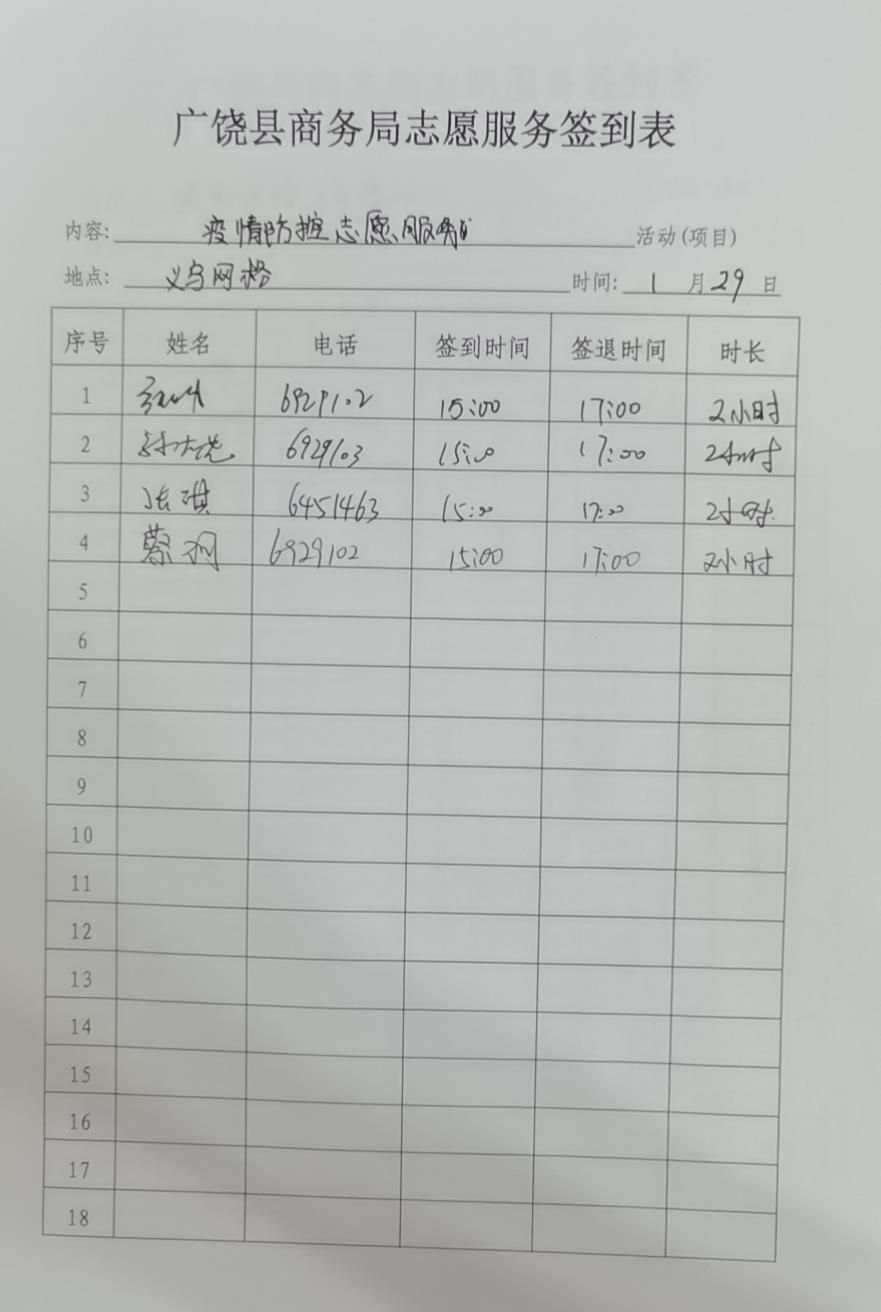 广饶县商务局志愿服务签到表
内容: 疫情防控志愿服务 活动(项目)
地点: 义乌网格 时间: 1 月 29 日
序号 姓名 电话 签到时间 签退时间 时长
1 6929102 15:00 17:00 2小时
2 6929103 15:00 17:00 2小时
3 张琪 6451463 15:00 17:00 2小时
4 蔡 6929102 15:00 17:00 2小时
5
6
7
8
9
10
11
12
13
14
15
16
17
18